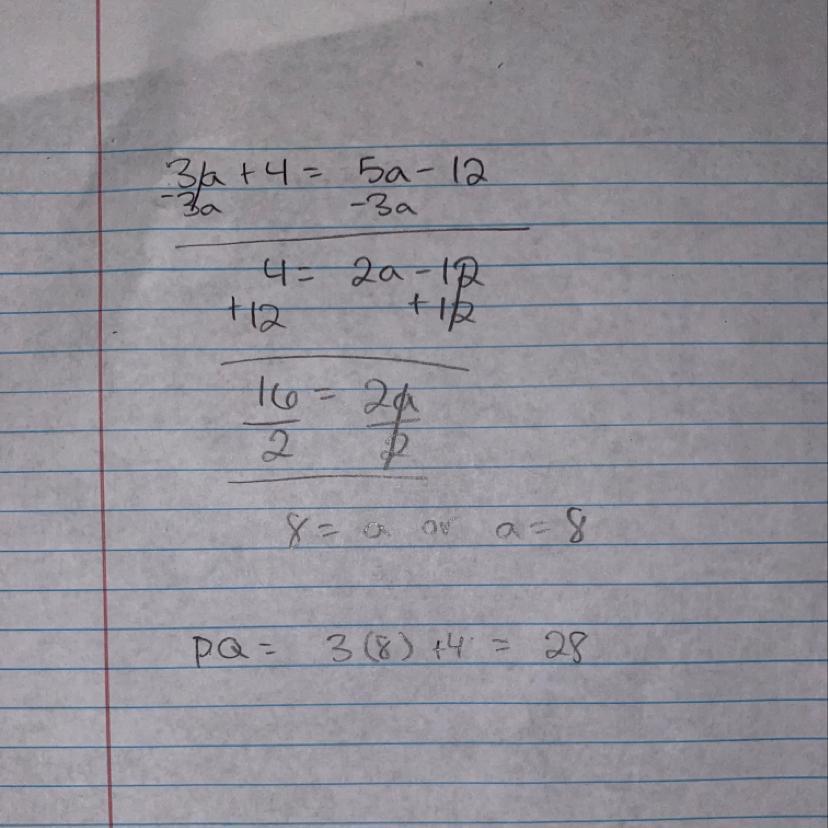 3a + 4 = 5a - 12
-3a -3a
4 = 2a - 12
+12 +12
16 = 2a
2 2
8 = a or a = 8
PQ = 3(8) + 4 = 28